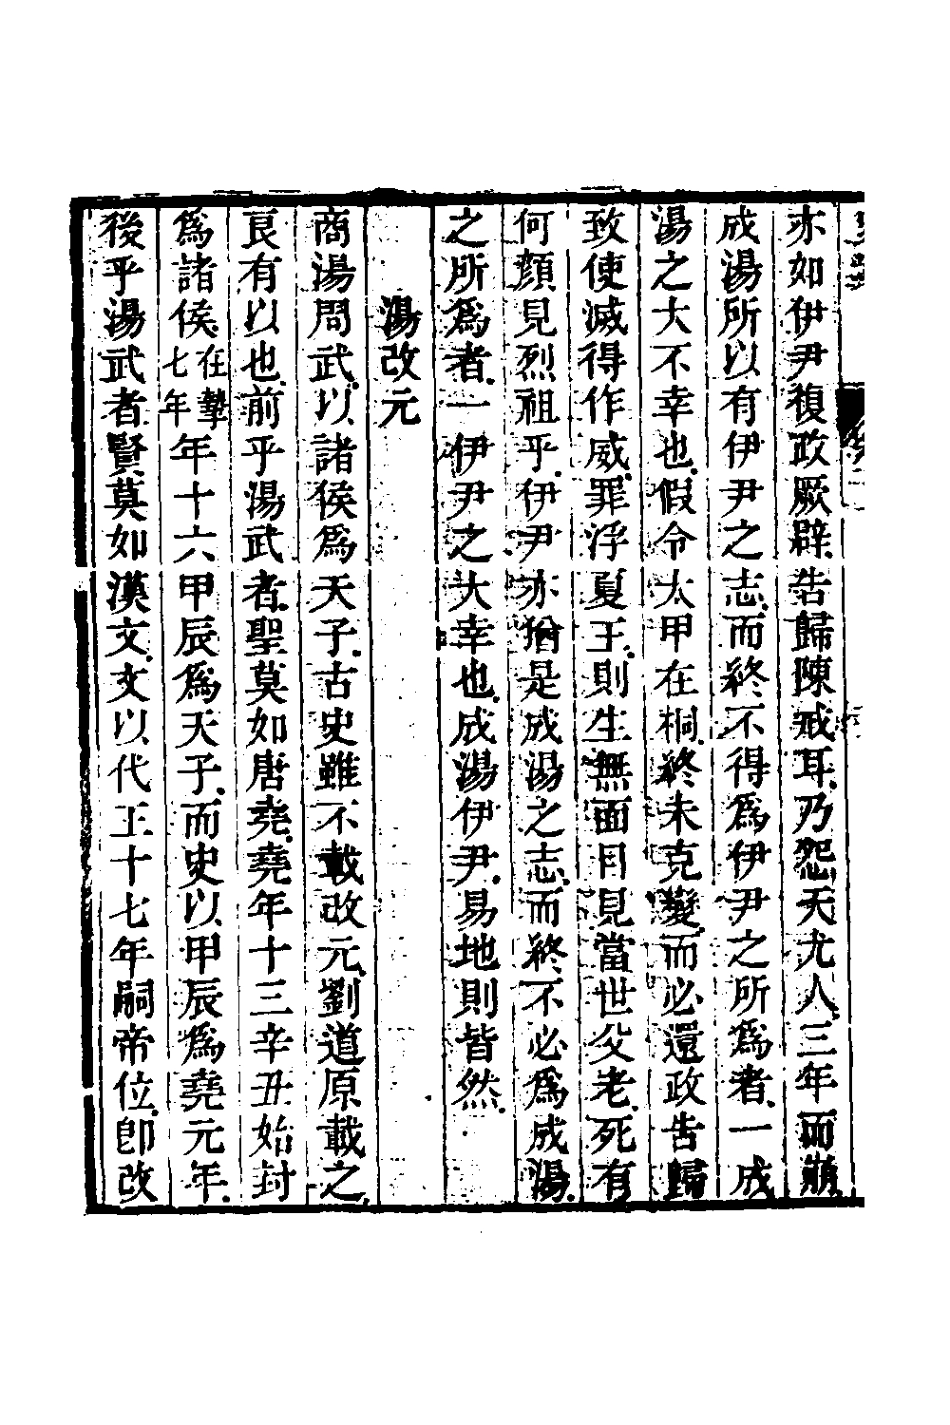 亦如伊尹復政厥辟告歸陳戒耳乃怨天尤人三年而崩
成湯所以有伊尹之志而終不得爲伊尹之所爲者一成
湯之大不幸也假令太甲在桐終未克變而必還政告歸
致使滅得作威罪浮夏王則生無面目見當世父老死有
何顔見烈祖乎伊尹亦猶是成湯之志而終不必爲成湯
之所爲者一伊尹之大幸也成湯伊尹易地則皆然
湯改元
商湯周武以諸侯爲天子古史雖不載改元劉道原載之
良有以也前乎湯武者聖莫如唐堯堯年十三辛丑始封
爲諸侯在摯七年年十六甲辰爲天子而史以甲辰爲堯元年
後乎湯武者賢莫如漢文文以代王十七年嗣帝位卽改